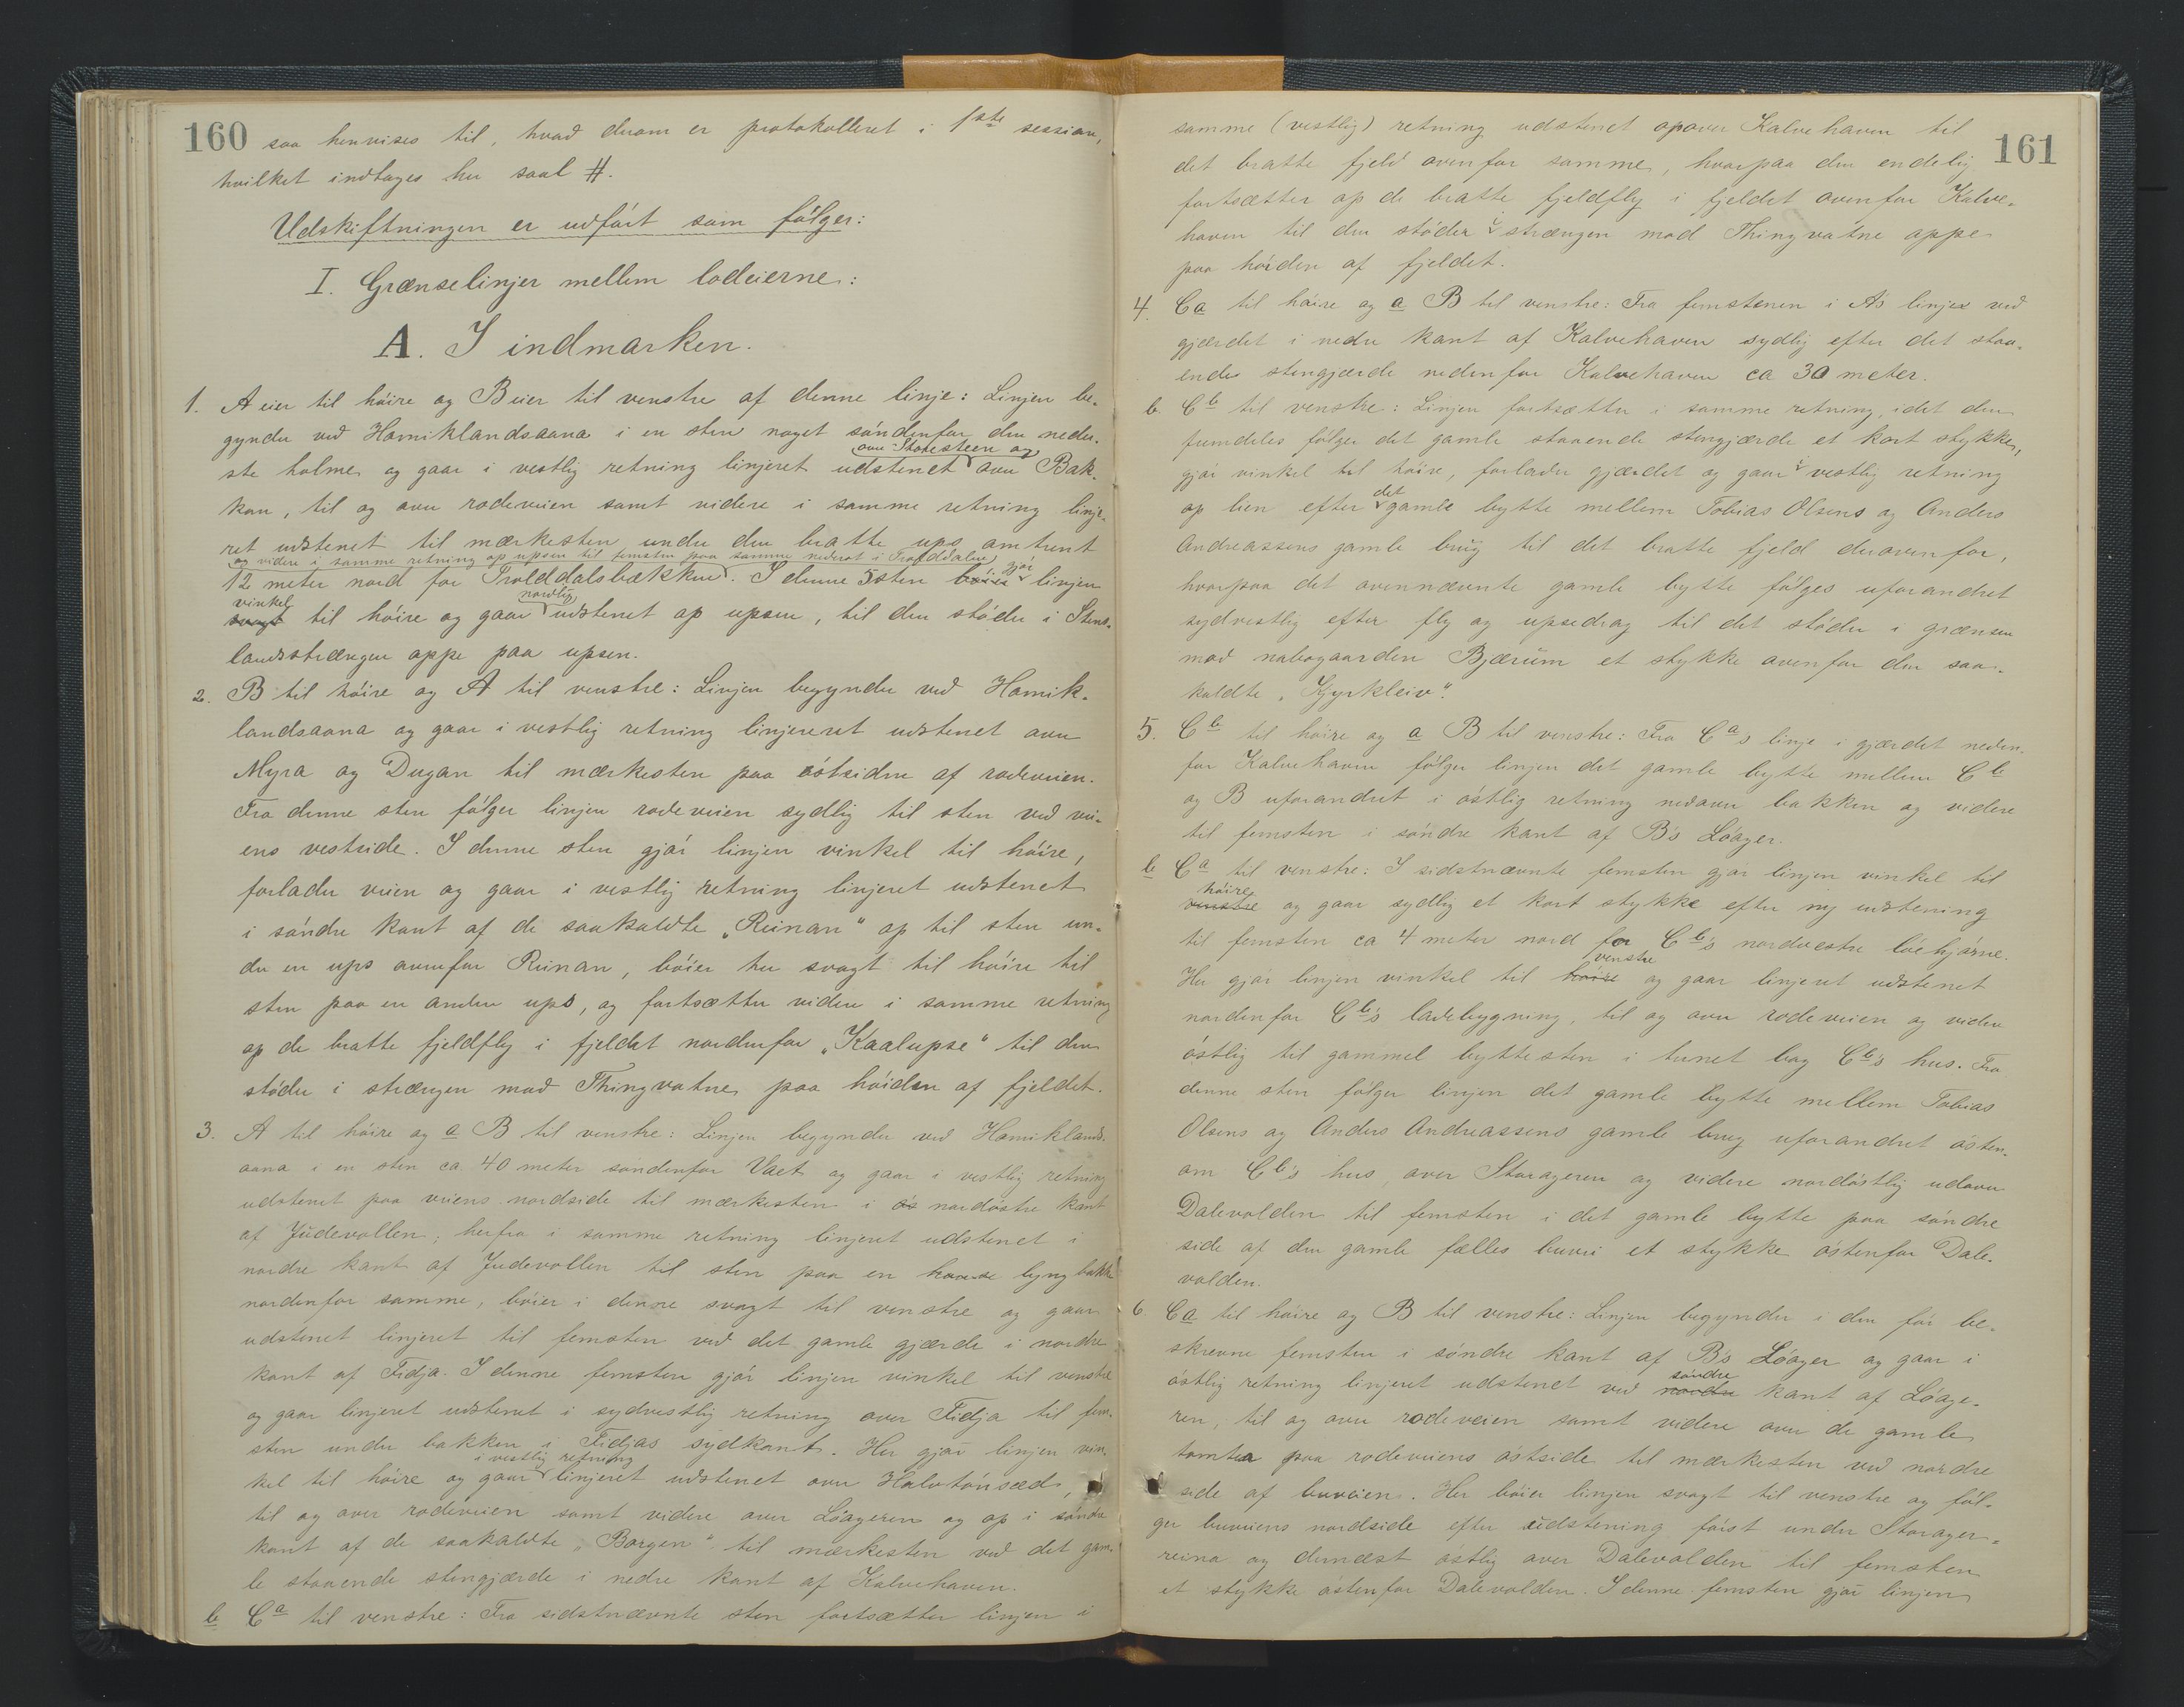 160
saa henvises til, hvad derom er protokolleret i 1ste session,
hvilket indtages her saal #.
Udskiftningen er udført som følger:
I. Grænselinjer mellem lodeierne:
A. I indmarken.
1. A eier til høire og B eier til venstre af denne linje: Linjen be-
gynder ved Hamiklandsaana i en sten noget søndenfor den neder-
ste holme og gaar i vestlig retning linjeret udstenet over Storesteen og over Bak-
kan, til og over rodeveien samt videre i samme retning linje-
ret udstenet til mærkesten under den bratte ups omtrent
og videre i samme retning op upsen til femsten paa samme nederst i Trolddalen
12 meter nord for Trolddalsbækken. I denne 5sten bøier gjør linjen
svagt vinkel til høire og gaar nordlig udstenet op upsen, til den støder i Stens-
landsstrængen oppe paa upsen.
2. B til høire og A til venstre: Linjen begynder ved Hamik-
landsaana og gaar i vestlig retning linjereret udstenet over
Myra og Dugan til mærkesten paa østsiden af rodeveien.
Fra denne sten følger linjen rodeveien sydlig til sten ved vei-
ens vestside. I denne sten gjør linjen vinkel til høire,
forlader veien og gaar i vestlig retning linjeret udstenet
i søndre kant af de saakaldte „Reinan" op til sten un-
der en ups ovenfor Reinan, bøier her svagt til høire til
sten paa en anden ups, og fortsætter videre i samme retning
op de bratte fjeldfly i fjeldet nordenfor „Kaalupse" til den
støder i strængen mod Thingvatne paa høiden af fjeldet.
3. A til høire og a B til venstre: Linjen begynder ved Hamiklands-
aana i en sten ca 40 meter søndenfor Vaet og gaar i vestlig retning
udstenet paa veiens nordside til mærkesten i øs nordøstre kant
af Judevollen, herfra i samme retning linjeret udstenet i
nordre kant af Judevollen til sten paa en lyngbakke
nordenfor samme, bøier i denne svagt til venstre og gaar
udstenet linjeret til femsten ved det gamle gjærde i nordre
kant af Fidja. I denne femsten gjør linjen vinkel til venstre
og gaar linjeret udstenet i sydvestlig retning over Fidja til fem-
sten under bakken i Fidjas sydkant. Her gjør linjen vin-
kel til høire og gaar i vestlig retning linjeret udstenet over Halvtønsæd,
til og over rodeveien samt videre over Løageren og op i søndre
kant af de saakaldte „Borgen" til mærkesten ved det gam-
le staaende stengjærde i nedre kant af Kalvehaven.
b Ca til venstre: Fra sidstnævnte sten fortsætter linjen i
161
samme (vestlig) retning udstenet opover Kalvehaven til
det bratte fjeld ovenfor samme, hvorpaa den endelig
fortsætter op de bratte fjeldfly i fjeldet ovenfor Kalve-
haven til den støder i strængen mod Thingvatne oppe
paa høiden af fjeldet.
4. Ca til høire og a B til venstre: Fra femstenen i As linje ved
gjærdet i nedre kant af Kalvehaven sydlig efter det staa-
ende stengjærde nedenfor Kalvehaven ca 30 meter.
b. Cb til venstre: Linjen fortsætter i samme retning, idet den
fremdeles følger det gamle staaende stengjærde et kort stykke,
gjør vinkel til høire, forlader gjærdet og gaar i vestlig retning
op lien efter det gamle bytte mellem Tobias Olsens og Anders
Andreassens gamle brug til det bratte fjeld derovenfor,
hvorpaa det ovennævnte gamle bytte følges uforandret
sydvestlig efter fly og upsedrag til det støder i grænsen
mod nabogaarden Bjærum et stykke ovenfor den saa-
kaldte „Kyrkleiv".
5. Cb til høire og a B til venstre: Fra Cas linje i gjærdet neden-
for Kalvehaven følger linjen det gamle bytte mellem Cb
og B uforandret i østlig retning nedover bakken og videre
til femsten i søndre kant af B's Løager.
b Ca til venstre: I sidstnævnte femsten gjør linjen vinkel til
venstre høire og gaar sydlig et kort stykke efter ny udstening
til femsten ca 4 meter nord for Cb's nordvestre løehjørne.
Her gjør linjen vinkel til høire venstre og gaar linjeret udstenet
nordenfor Cb's ladebygning, til og over rodeveien og videre
østlig til gammel byttesten i tunet bag Cb's hus. Fra
denne sten følger linjen det gamle bytte mellem Tobias
Olsens og Anders Andreassens gamle brug uforandret østen-
om Cb's hus, over Storageren og videre nordøstlig udover
Dalevolden til femsten i det gamle bytte paa søndre
side af den gamle fælles buvei et stykke østenfor Dale-
volden.
6. Ca til høire og B til venstre: Linjen begynder i den før be-
skrevne femsten i søndre kant af B's Løager og gaar i
østlig retning linjeret udstenet ved nordre søndre kant af Løage-
ren, til og over rodeveien samt videre over de gamle
tomter paa rodeveiens østside til mærkesten ved nordre
side af buveien. Her bøier linjen svagt til venstre og føl-
ger buveiens nordside efter udstening først under Storager-
reina og dernæst østlig over Dalevolden til femsten
et stykke østenfor Dalevolden. I denne femsten gjør linjen